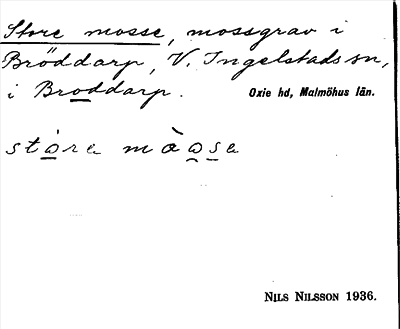 Store mosse, mossgrav i
Bröddarp, V. Ingelstads sn,
i Broddarp.
Oxie hd, Malmöhus län.
NILS NILSSON 1936.